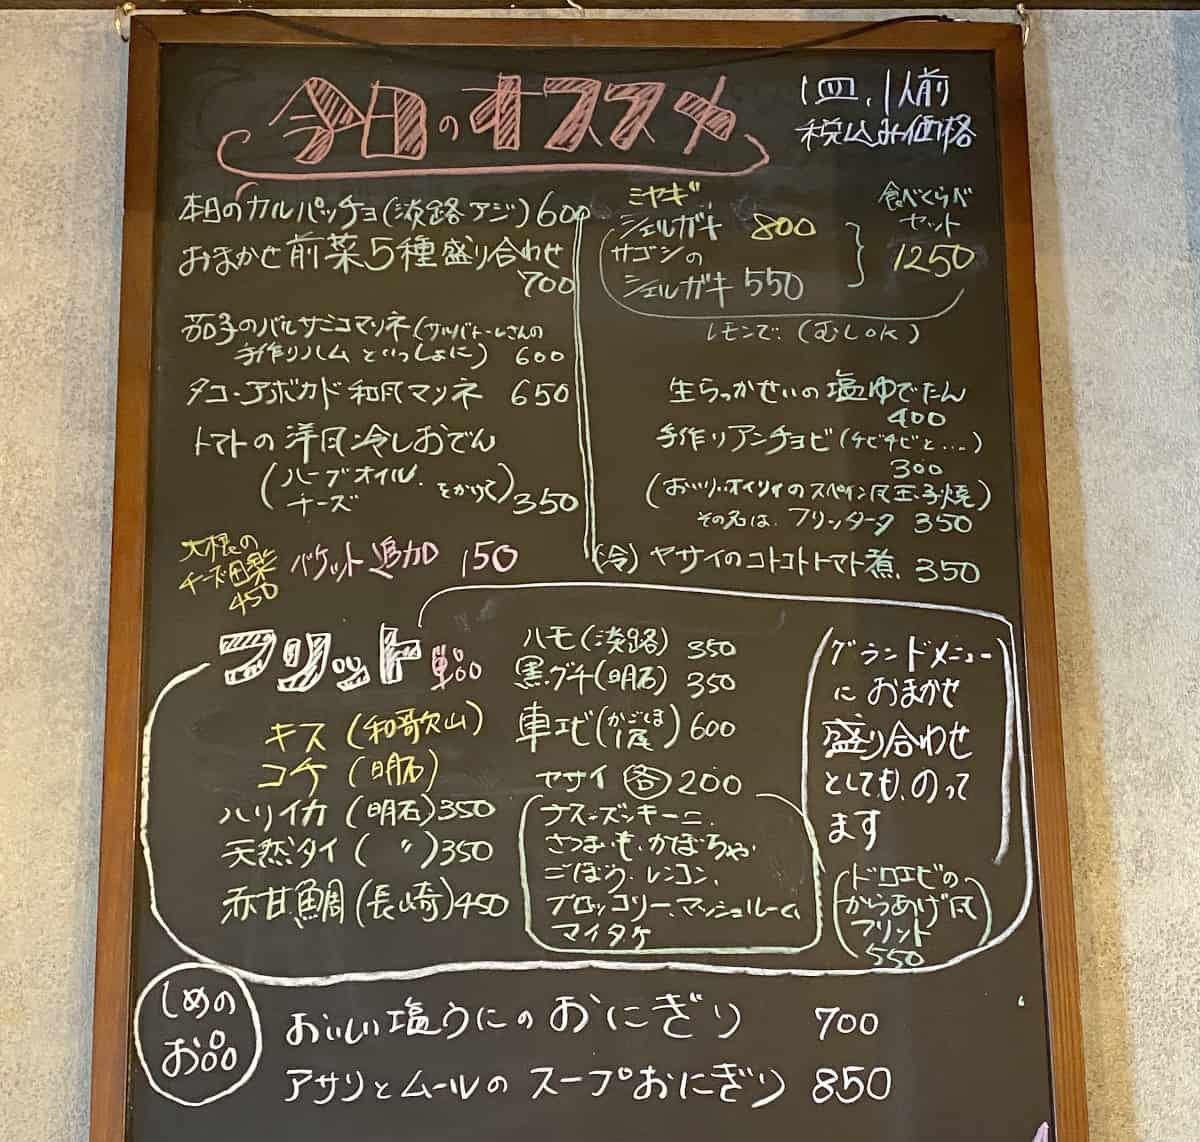 今日のオススメ
1皿、1人前
税込み価格
本日のカルパッチョ(淡路アジ)600
おまかせ前菜5種盛り合わせ
700
茄子のバルサミコマリネ(サルバトーレさんの
手作りハムといっしょに) 600
タコ・アボカド和風マリネ 650
トマトの洋風冷しおでん
(ハーブオイル、
チーズ をかけて)350
大根の
チーズ田楽
450
バケット追加 150
ミヤギ
シェルガキ 800
サゴシの
シェルガキ 550
食べくらべ
セット
1250
レモンで。(むしOK)
生らっかせいの塩ゆでたん
400
手作りアンチョビ(チビチビと....)
300
(おいり・オイリイのスペイン風玉子焼)
その名は、フリッタータ 350
(冷)ヤサイのコトコトトマト煮 350
フリット単品
キス(和歌山)
コチ(明石)
ハリイカ(明石)350
天然タイ(〃)350
赤甘鯛(長崎)450
ハモ(淡路) 350
黒グチ(明石) 350
車エビ(かごしま産)600
ヤサイ各200
ナス・ズッキーニ、
さつまいも、かぼちゃ
ごぼう、レンコン、
ブロッコリー、マッシュルーム、
マイタケ
グランドメニュー
におまかせ
盛り合わせ
としても、のって
ます
(ドロエビの
からあげ風
フリット
550)
しめの
お品
おいしい塩うにのおにぎり 700
アサリとムールのスープおにぎり 850